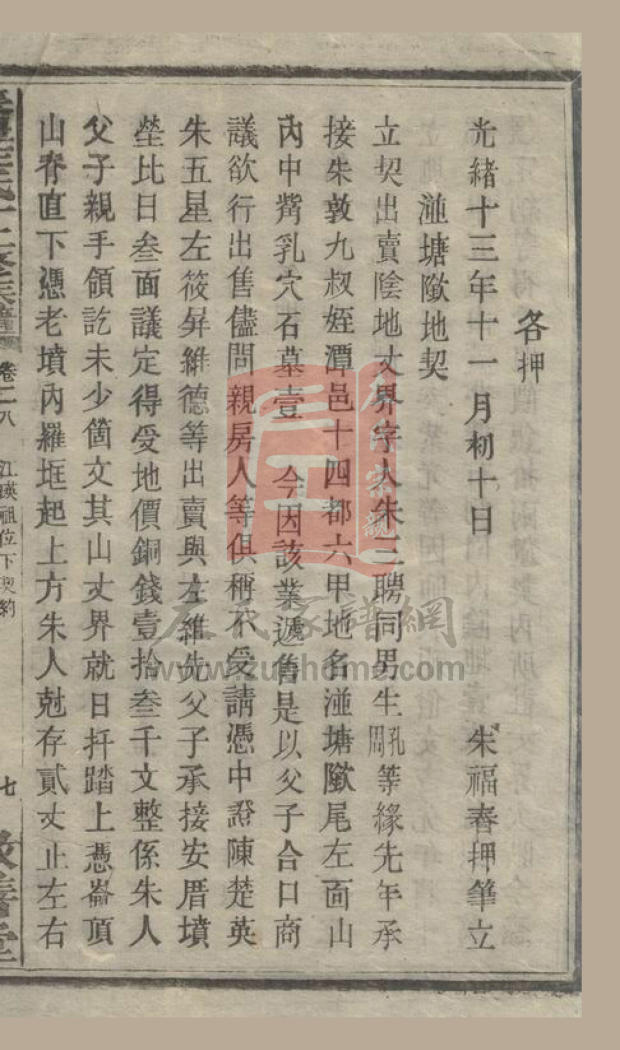 各押
光緒十三年十一月初十日 朱福春押筆立
湴塘歘地契
立契出賣陰地丈界字人朱三聘同男生甩凮等緣先年承
接朱敦九叔姪潭邑十四都六甲地名湴塘歘尾左面山
內中觜乳穴石墓壹 今因該業遞售是以父子合口商
議欲行出售儘問親房人等俱稱不受請憑中證陳楚英
朱五星左筱昇維德等出賣與左維先父子承接安厝墳
塋比日叁面議定得受地價銅錢壹拾叁千文整係朱人
父子親手領訖未少箇文其山丈界就日扦踏上憑崙頂
山脊直下憑老墳內羅圫起上方朱人尅存貳丈止左右
卷二八 江瑛祖位下契約 七
www.zuphome.com